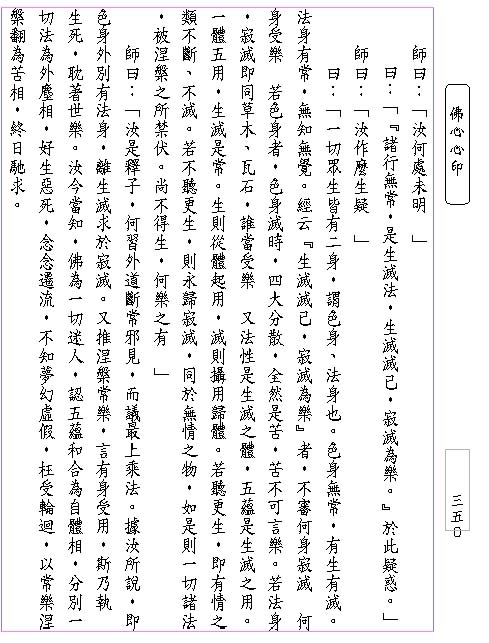 佛心心印
三五〇
師曰：「汝何處未明　」
曰：「『諸行無常，是生滅法，生滅滅已，寂滅為樂。』於此疑惑。」
師曰：「汝作麼生疑　」
曰：「一切眾生皆有二身，謂色身、法身也。色身無常，有生有滅。
法身有常，無知無覺。經云『生滅滅已，寂滅為樂』者，不審何身寂滅　何
身受樂　若色身者，色身滅時，四大分散，全然是苦，苦不可言樂。若法身
，寂滅即同草木、瓦石，誰當受樂　又法性是生滅之體，五蘊是生滅之用。
一體五用，生滅是常。生則從體起用，滅則攝用歸體。若聽更生，即有情之
類不斷、不滅。若不聽更生，則永歸寂滅，同於無情之物，如是則一切諸法
，被涅槃之所禁伏。尚不得生，何樂之有　」
師曰：「汝是釋子，何習外道斷常邪見，而議最上乘法。據汝所說，即
色身外別有法身，離生滅求於寂滅。又推涅槃常樂，言有身受用，斯乃執
生死，耽著世樂。汝今當知，佛為一切迷人，認五蘊和合為自體相，分別一
切法為外塵相，好生惡死，念念遷流，不知夢幻虛假，枉受輪迴，以常樂涅
槃翻為苦相，終日馳求。